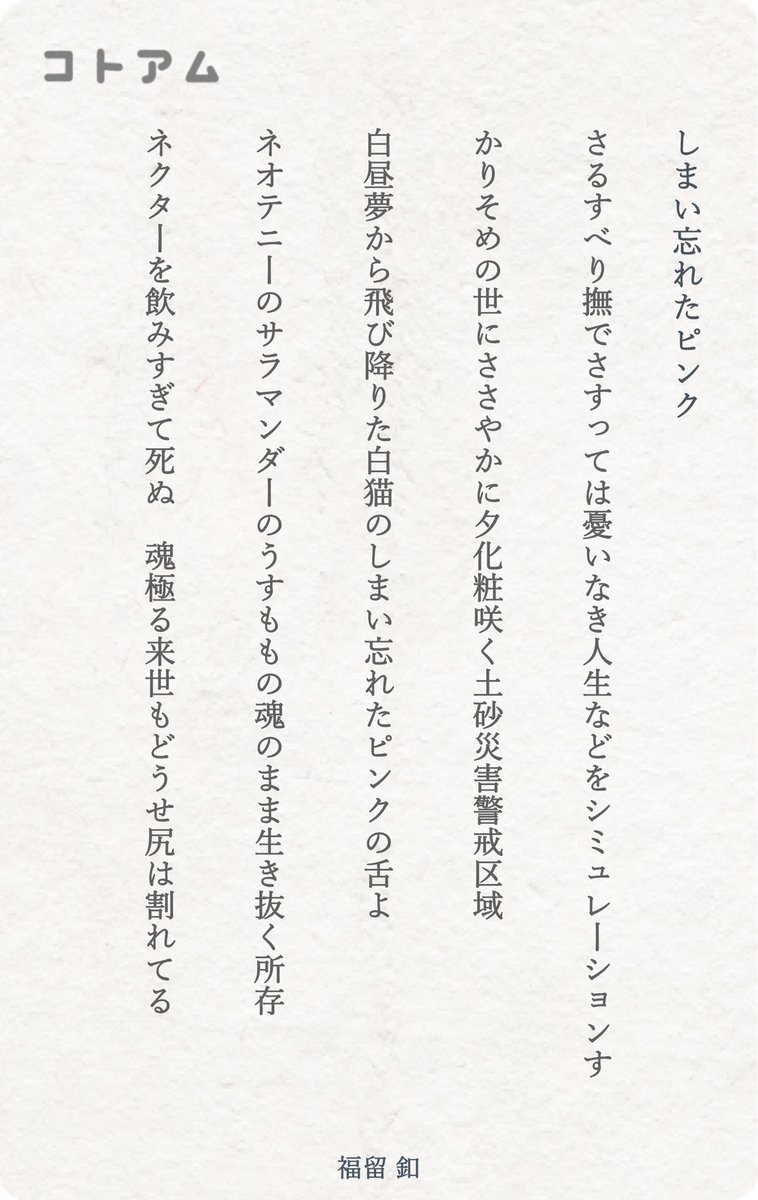 コトアム
しまい忘れたピンク
さるすべり撫でさすっては憂いなき人生などをシミュレーションす
かりそめの世にささやかに夕化粧咲く土砂災害警戒区域
白昼夢から飛び降りた白猫のしまい忘れたピンクの舌よ
ネオテニーのサラマンダーのうすももの魂のまま生き抜く所存
ネクターを飲みすぎて死ぬ　魂極る来世もどうせ尻は割れてる
福留 釦